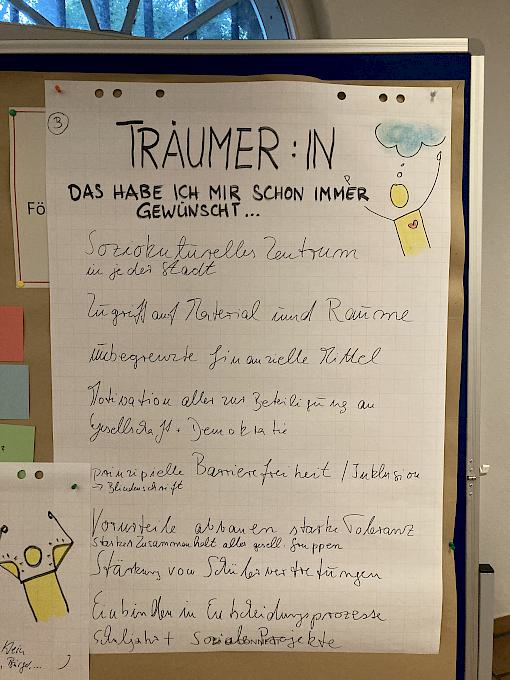 3
TRÄUMER:IN
DAS HABE ICH MIR SCHON IMMER
GEWÜNSCHT...
Soziokulturelles Zentrum
in jeder Stadt
Zugriff auf Material und Räume
unbegrenzte finanzielle Mittel
Motivation aller zur Beteiligung an
Gesellschaft + Demokratie
prinzipielle Barrierefreiheit / Inklusion
→ Blindenschrift
Vorurteile abbauen starke Toleranz
starker Zusammenhalt aller gesell. Gruppen
Stärkung von Schülervertretungen
Einbinden in Entscheidungsprozesse
Schuljahr + soziale Projekte
Fö
Klein